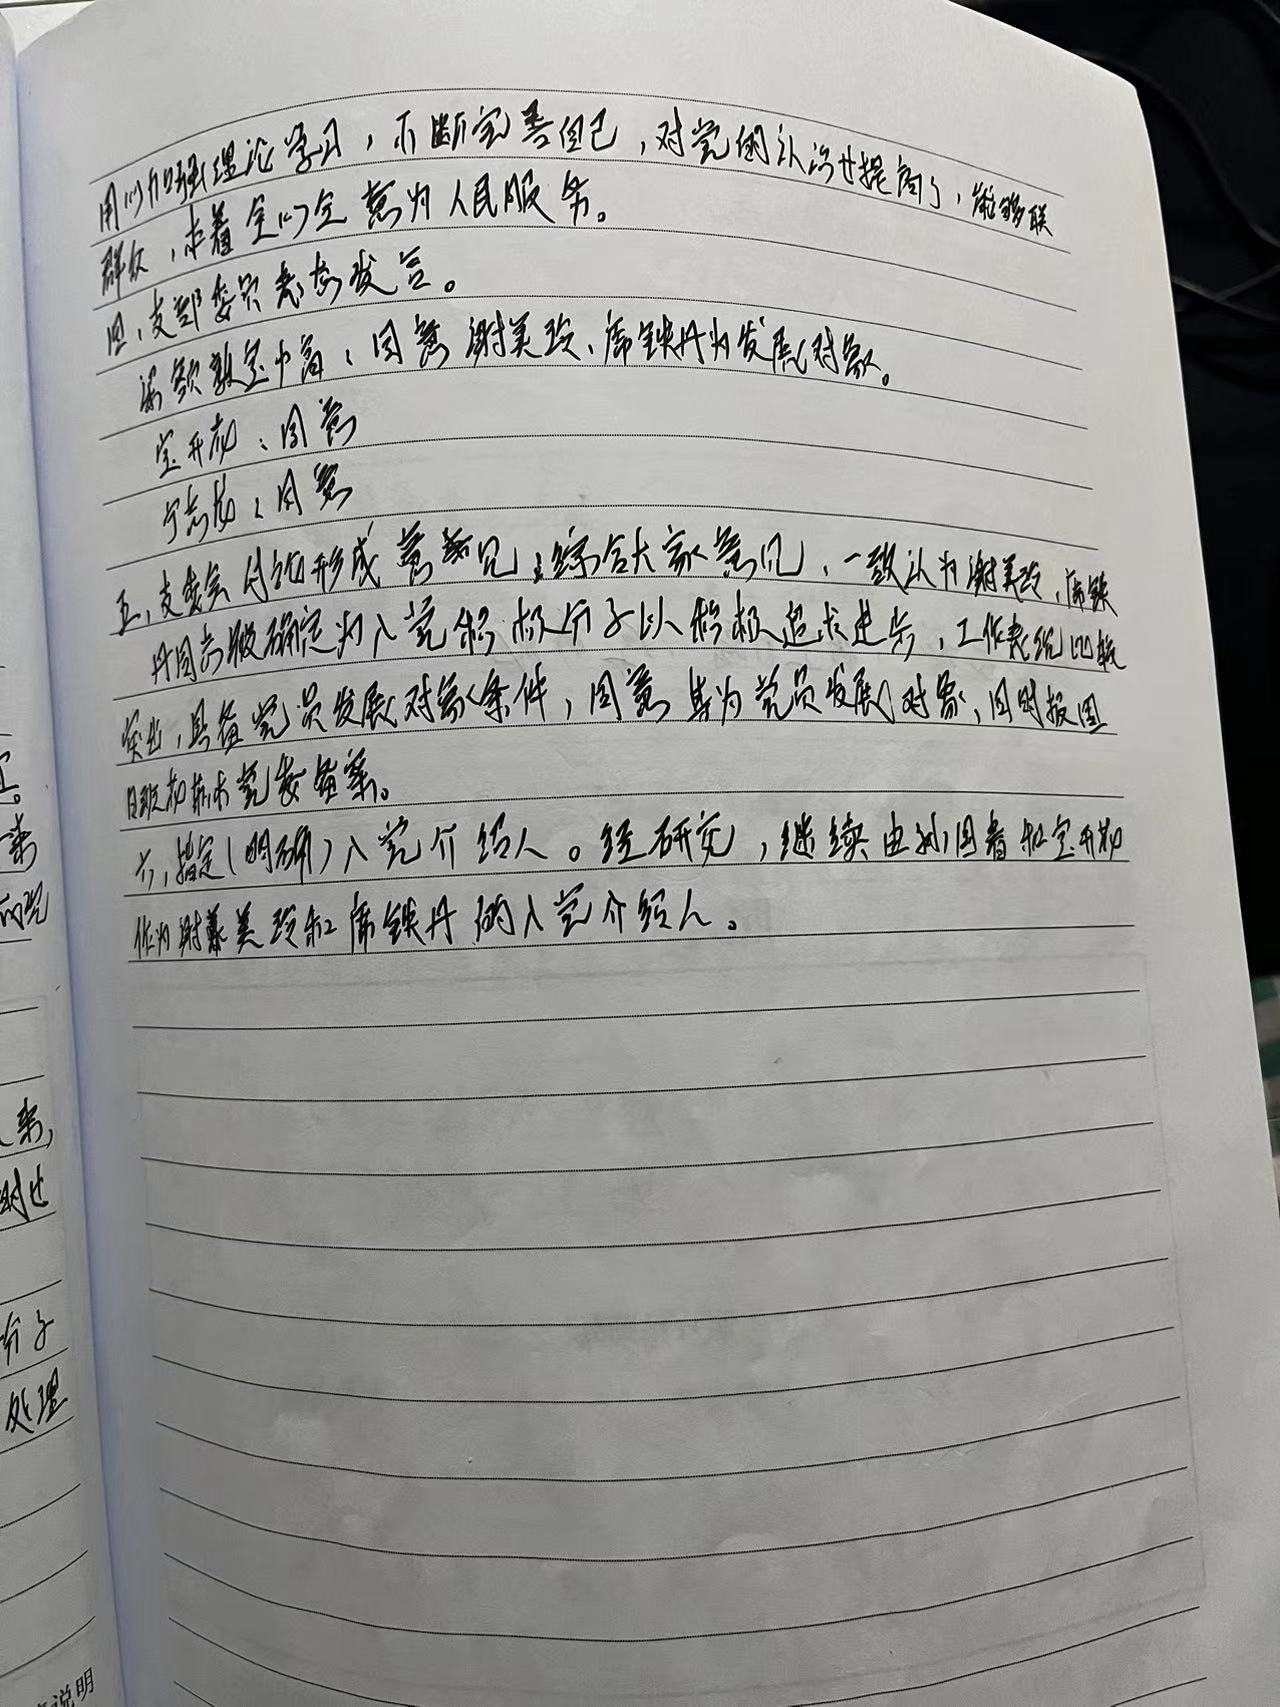 用心加强理论学习，不断完善自己，对党的认识也提高了，能够联
群众，本着全心全意为人民服务。
四、支部委员表态发言。
同意谢美玲、席铁丹为发展对象。
宝开初：同意
宁志勃：同意
五、支委会讨论形成意见：综合大家意见，一致认为谢美玲、席铁
丹同志被确定为入党积极分子以积极追求进步，工作表现比较
突出，具备党员发展对象条件，同意其为党员发展对象，同时报
党委备案。
六、指定（明确）入党介绍人。经研究，继续由孙国春和宝开初
作为谢美玲和席铁丹的入党介绍人。
来
的党
来，
对比
分子
处理
说明